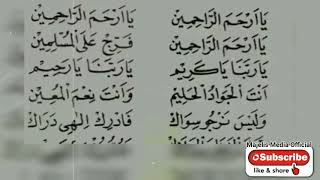 يَا اَرْحَمَ الرَّاحِمِيْن يَا اَرْحَمَ الرَّاحِمِيْن
يَا اَرْحَمَ الرَّاحِمِيْن فَرِّجْ عَلَى الْمُسْلِمِيْن
يَا رَبَّنَا يَا كَرِيْم يَا رَبَّنَا يَا رَحِيْم
اَنْتَ الْجَوَادُ الْحَلِيْم وَاَنْتَ نِعْمَ الْمُعِيْن
وَلَيْسَ نَرْجُو سِوَاكَ فَادْرِكْ اِلٰهِى دَرَاكَ
Majelis Media Official
Subscribe
like & share